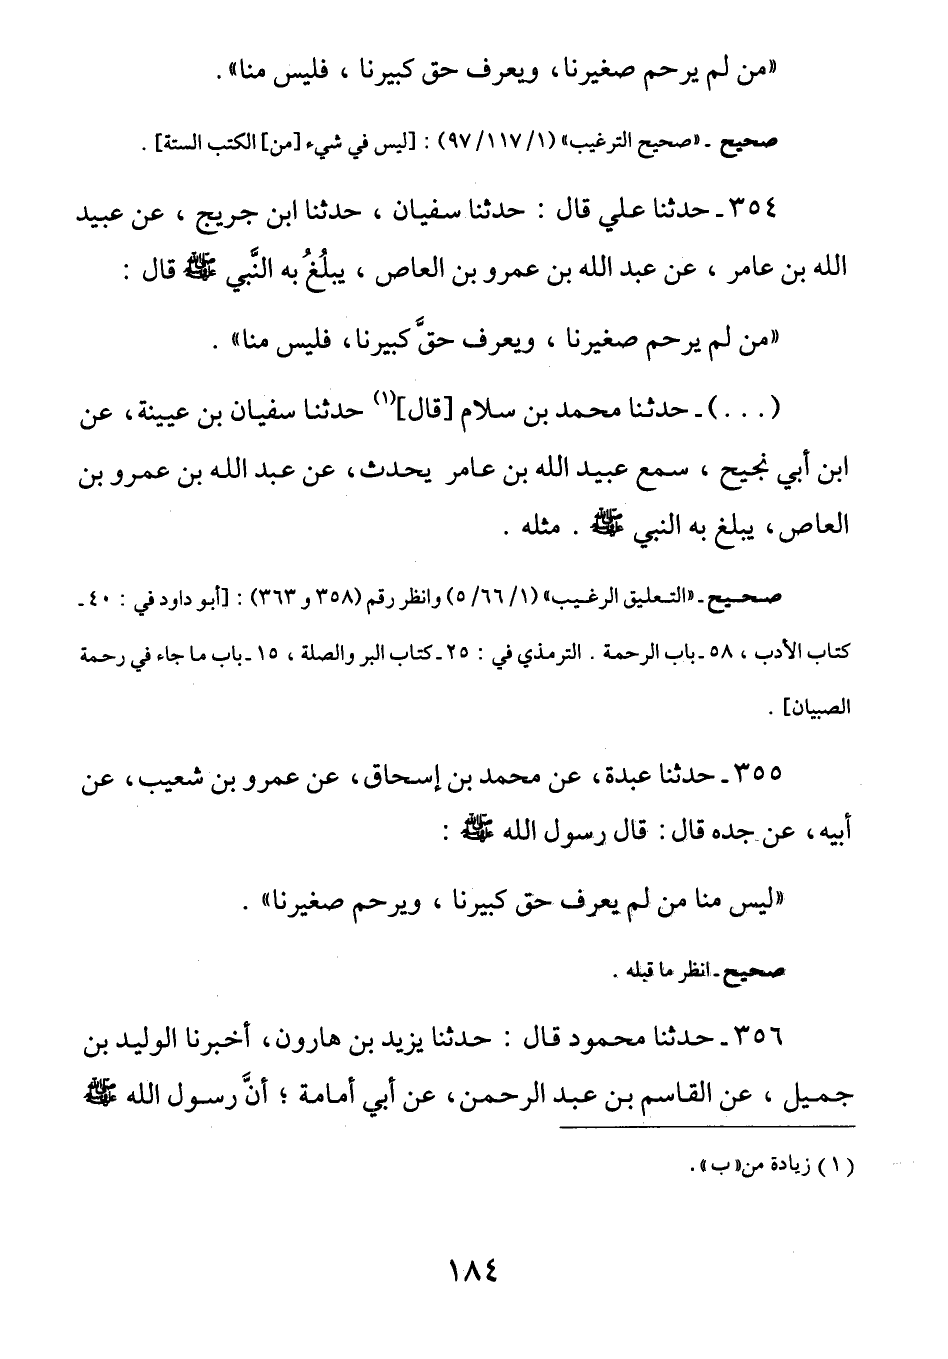 «من لم يرحم صغيرنا، ويعرف حق كبيرنا ، فليس منا» .
صحيح ـ «صحيح الترغيب» (٩٧/١١٧/١) : [ليس في شيء [من] الكتب الستة] .
٣٥٤ ـ حدثنا علي قال : حدثنا سفيان ، حدثنا ابن جريج ، عن عبيد
الله بن عامر ، عن عبد الله بن عمرو بن العاص ، يبلُغُ به النَّبي ﷺ قال :
«من لم يرحم صغيرنا ، ويعرف حقَّ كبيرنا، فليس منا» .
(. . .) ـ حدثنا محمد بن سلام [قال](١) حدثنا سفيان بن عيينة، عن
ابن أبي نجيح ، سمع عبيد الله بن عامر يحدث، عن عبد الله بن عمرو بن
العاص، يبلغ به النبي ﷺ . مثله .
صحيح ـ «التعليق الرغيب» (٥/٦٦/١) وانظر رقم (٣٥٨ و ٣٦٣) : [أبو داود في : ٤٠ ـ
كتاب الأدب ، ٥٨ ـ باب الرحمة . الترمذي في : ٢٥ ـ كتاب البر والصلة ، ١٥ ـ باب ما جاء في رحمة
الصبيان] .
٣٥٥ ـ حدثنا عبدة، عن محمد بن إسحاق، عن عمرو بن شعيب، عن
أبيه، عن جده قال: قال رسول الله ﷺ :
«ليس منا من لم يعرف حق كبيرنا ، ويرحم صغيرنا» .
صحيح ـ انظر ما قبله .
٣٥٦ ـ حدثنا محمود قال : حدثنا يزيد بن هارون، أخبرنا الوليد بن
جميل ، عن القاسم بن عبد الرحمن، عن أبي أمامة ؛ أنَّ رسول الله ﷺ
(١) زيادة من «ب» .
١٨٤